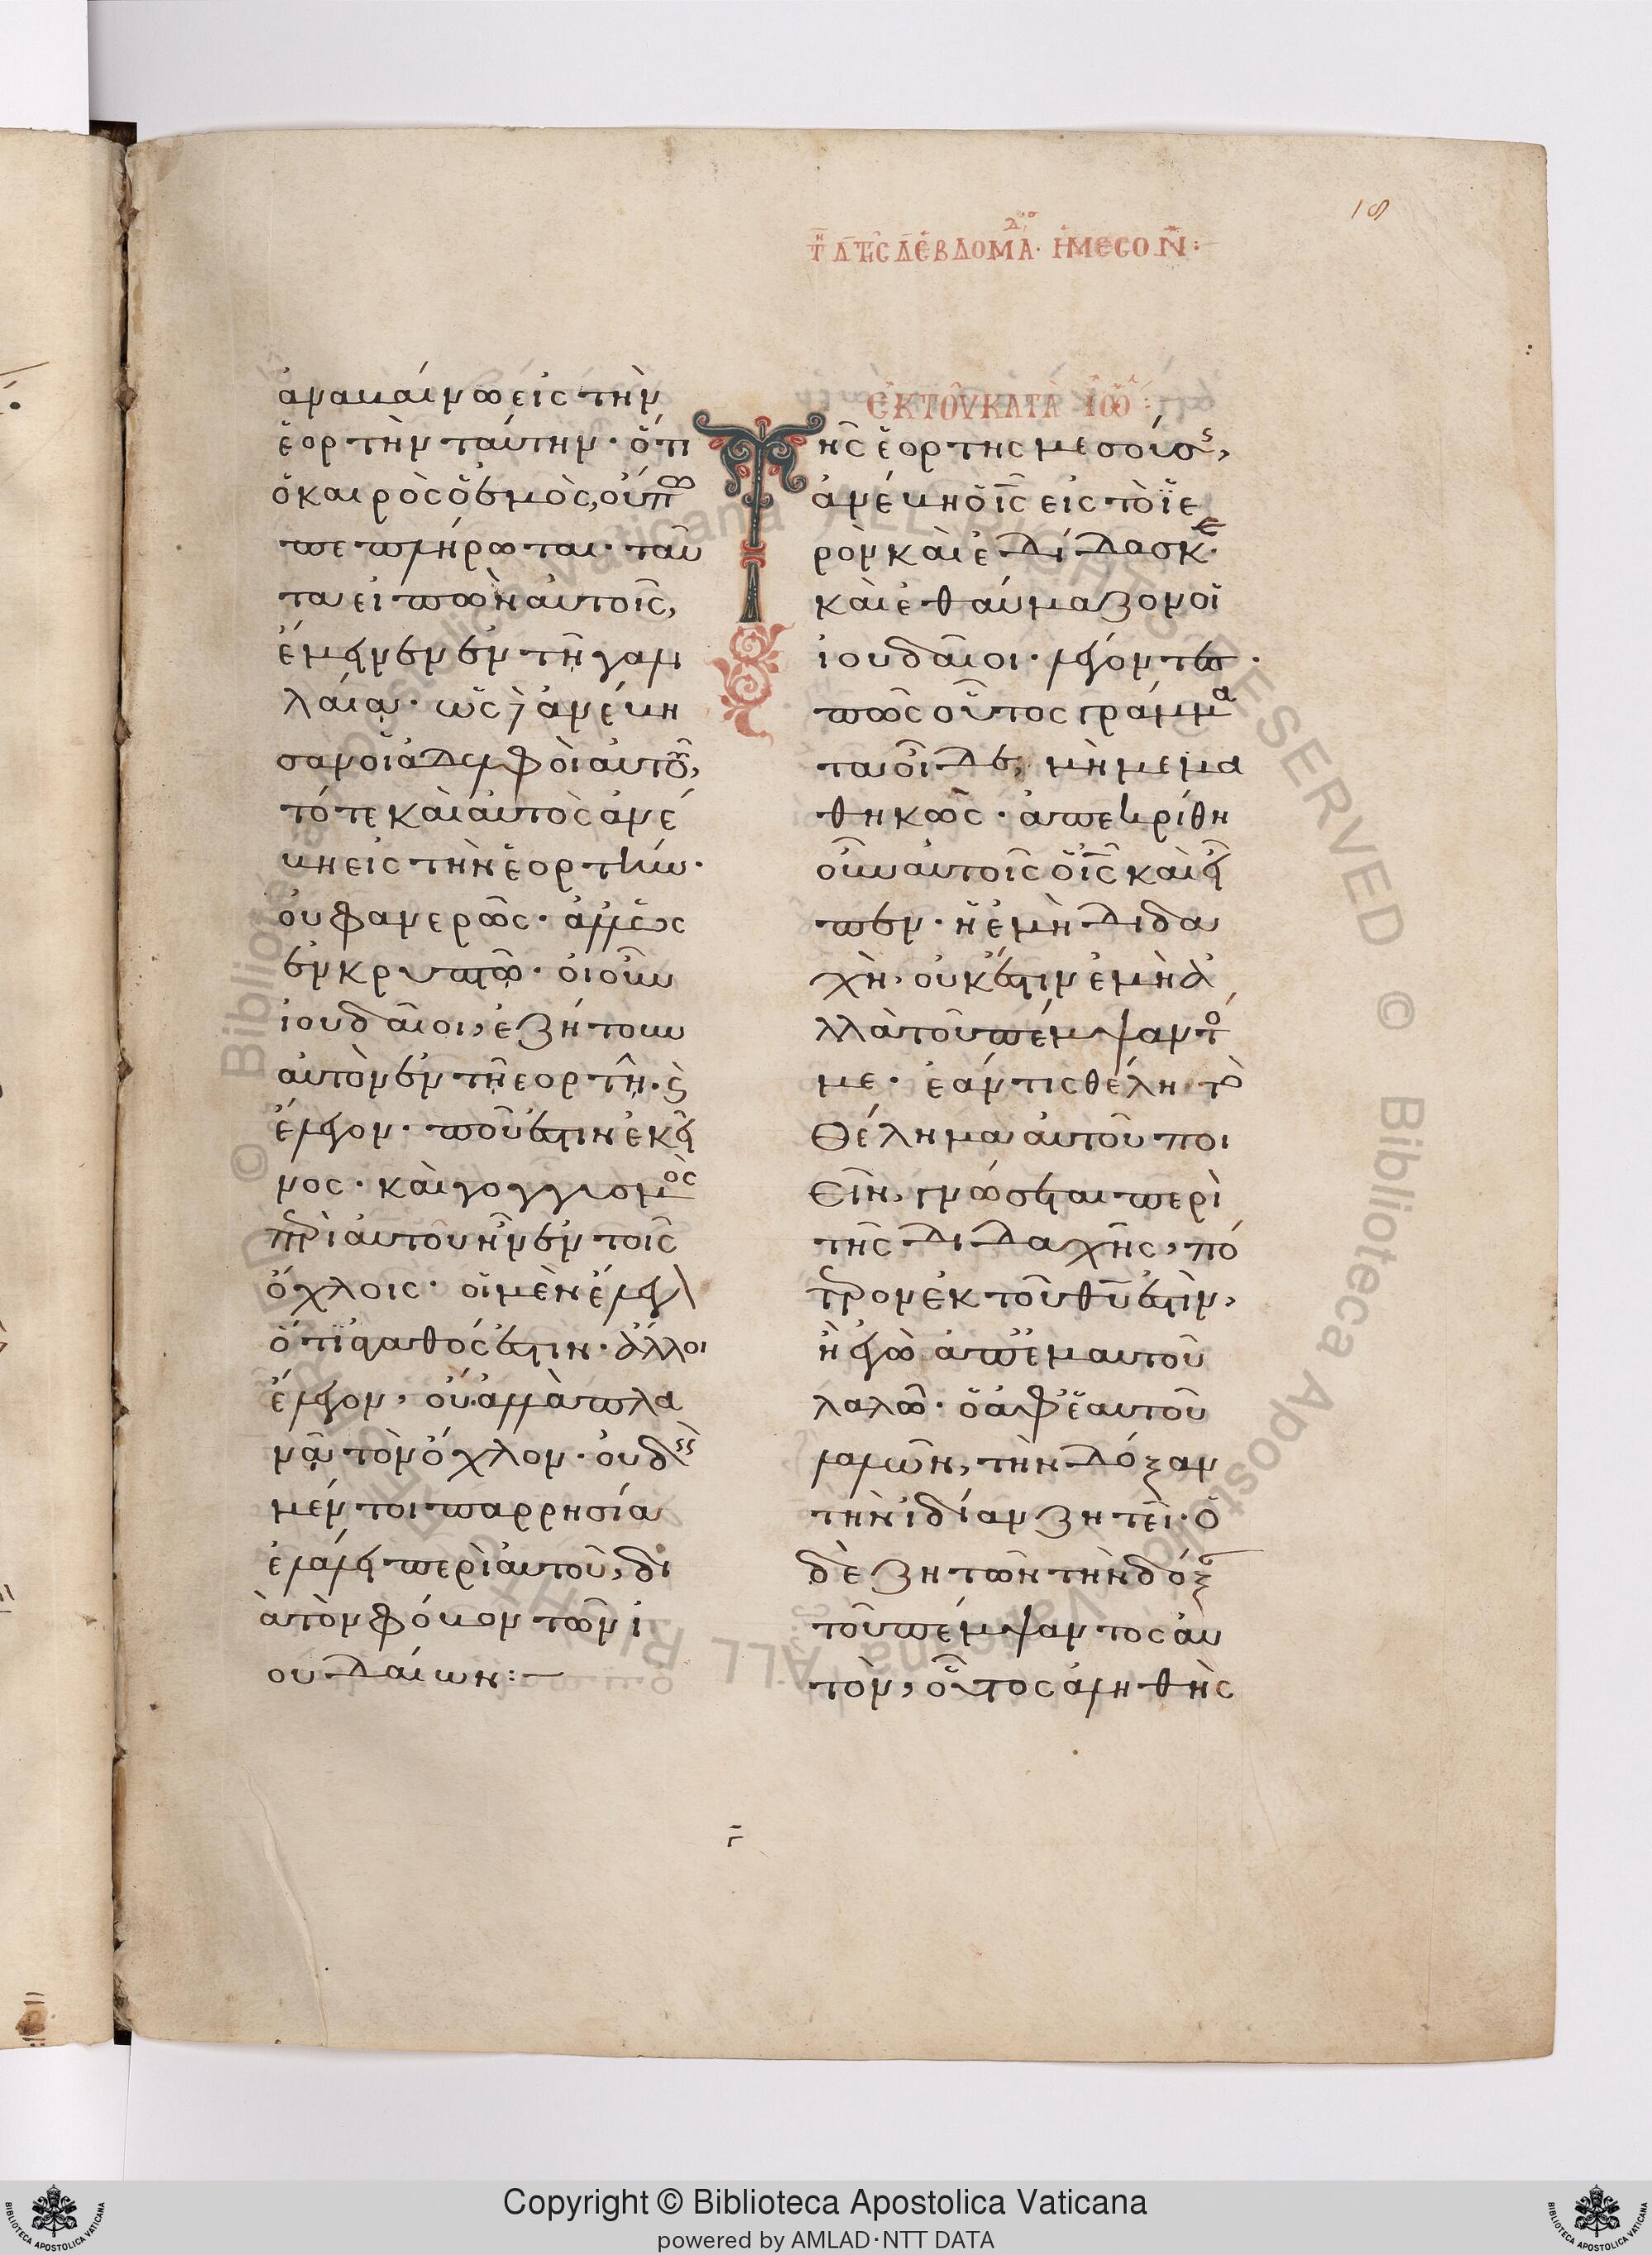 18
τῆ δ τῆς δ ἑβδομά· ἡ μεσον:
ἀναβαίνω εἰς τὴν
ἑορτὴν ταύτην· ὅτι
ὁ καιρὸς ὁ ἐμὸς, οὔπω
πεπλήρωται· ταῦ
τα εἰπὼν αὐτοῖς,
ἔμεινεν ἐν τῆ γαλι
λαία· ὡς δὲ ἀνέβη
σαν οἱ ἀδελφοὶ αὐτοῦ,
τότε καὶ αὐτὸς ἀνέ
βη εἰς τὴν ἑορτήν·
οὐ φανερῶς· ἀλλ' ὡς
ἐν κρυπτῶ· οἱ οὖν
ἰουδαῖοι, ἐζήτουν
αὐτὸν ἐν τῆ ἑορτῆ· καὶ
ἔλεγον· ποῦ ἐστιν ἐκεῖ
νος· καὶ γογγυσμὸς
περὶ αὐτοῦ ἦν ἐν τοῖς
ὄχλοις· οἱ μὲν ἔλεγον
ὅτι ἀγαθός ἐστιν· ἄλλοι
ἔλεγον, οὔ· ἀλλὰ πλα
νᾶ τὸν ὄχλον· οὐδεὶς
μέντοι παρρησία
ἐλάλει περὶ αὐτοῦ, δι
ὰ τὸν φόβον τῶν ἰ
ουδαίων:
ἐκ τοῦ κατὰ ἰω:
Τῆς ἑορτῆς μεσούσης,
ἀνέβη ὁ ις εἰς τὸ ἱε
ρὸν καὶ ἐδίδασκε·
καὶ ἐθαύμαζον οἱ
ἰουδαῖοι· λέγοντες·
πῶς οὗτος γράμμα
τα οἶδε, μὴ μεμα
θηκώς· ἀπεκρίθη
οὖν αὐτοῖς ὁ ις καὶ εἶ
πεν· ἡ ἐμὴ διδα
χὴ, οὐκ ἔστιν ἐμὴ ἀ
λλὰ τοῦ πέμψαντό
με· ἐάν τις θέλη τὸ
θέλημα αὐτοῦ ποι
εῖν, γνώσεται περὶ
τῆς διδαχῆς, πό
τερον ἐκ τοῦ θυ ἐστὶν,
ἢ ἐγὼ ἀπ' ἐμαυτοῦ
λαλῶ· ὁ ἀφ' ἑαυτοῦ
λαλῶν, τὴν δόξαν
τὴν ἰδίαν ζητεῖ· ὁ
δὲ ζητῶν τὴν δόξαν
τοῦ πέμψαντος αὐ
τὸν, οὗτος ἀληθὴς
Copyright © Biblioteca Apostolica Vaticana
powered by AMLAD·NTT DATA